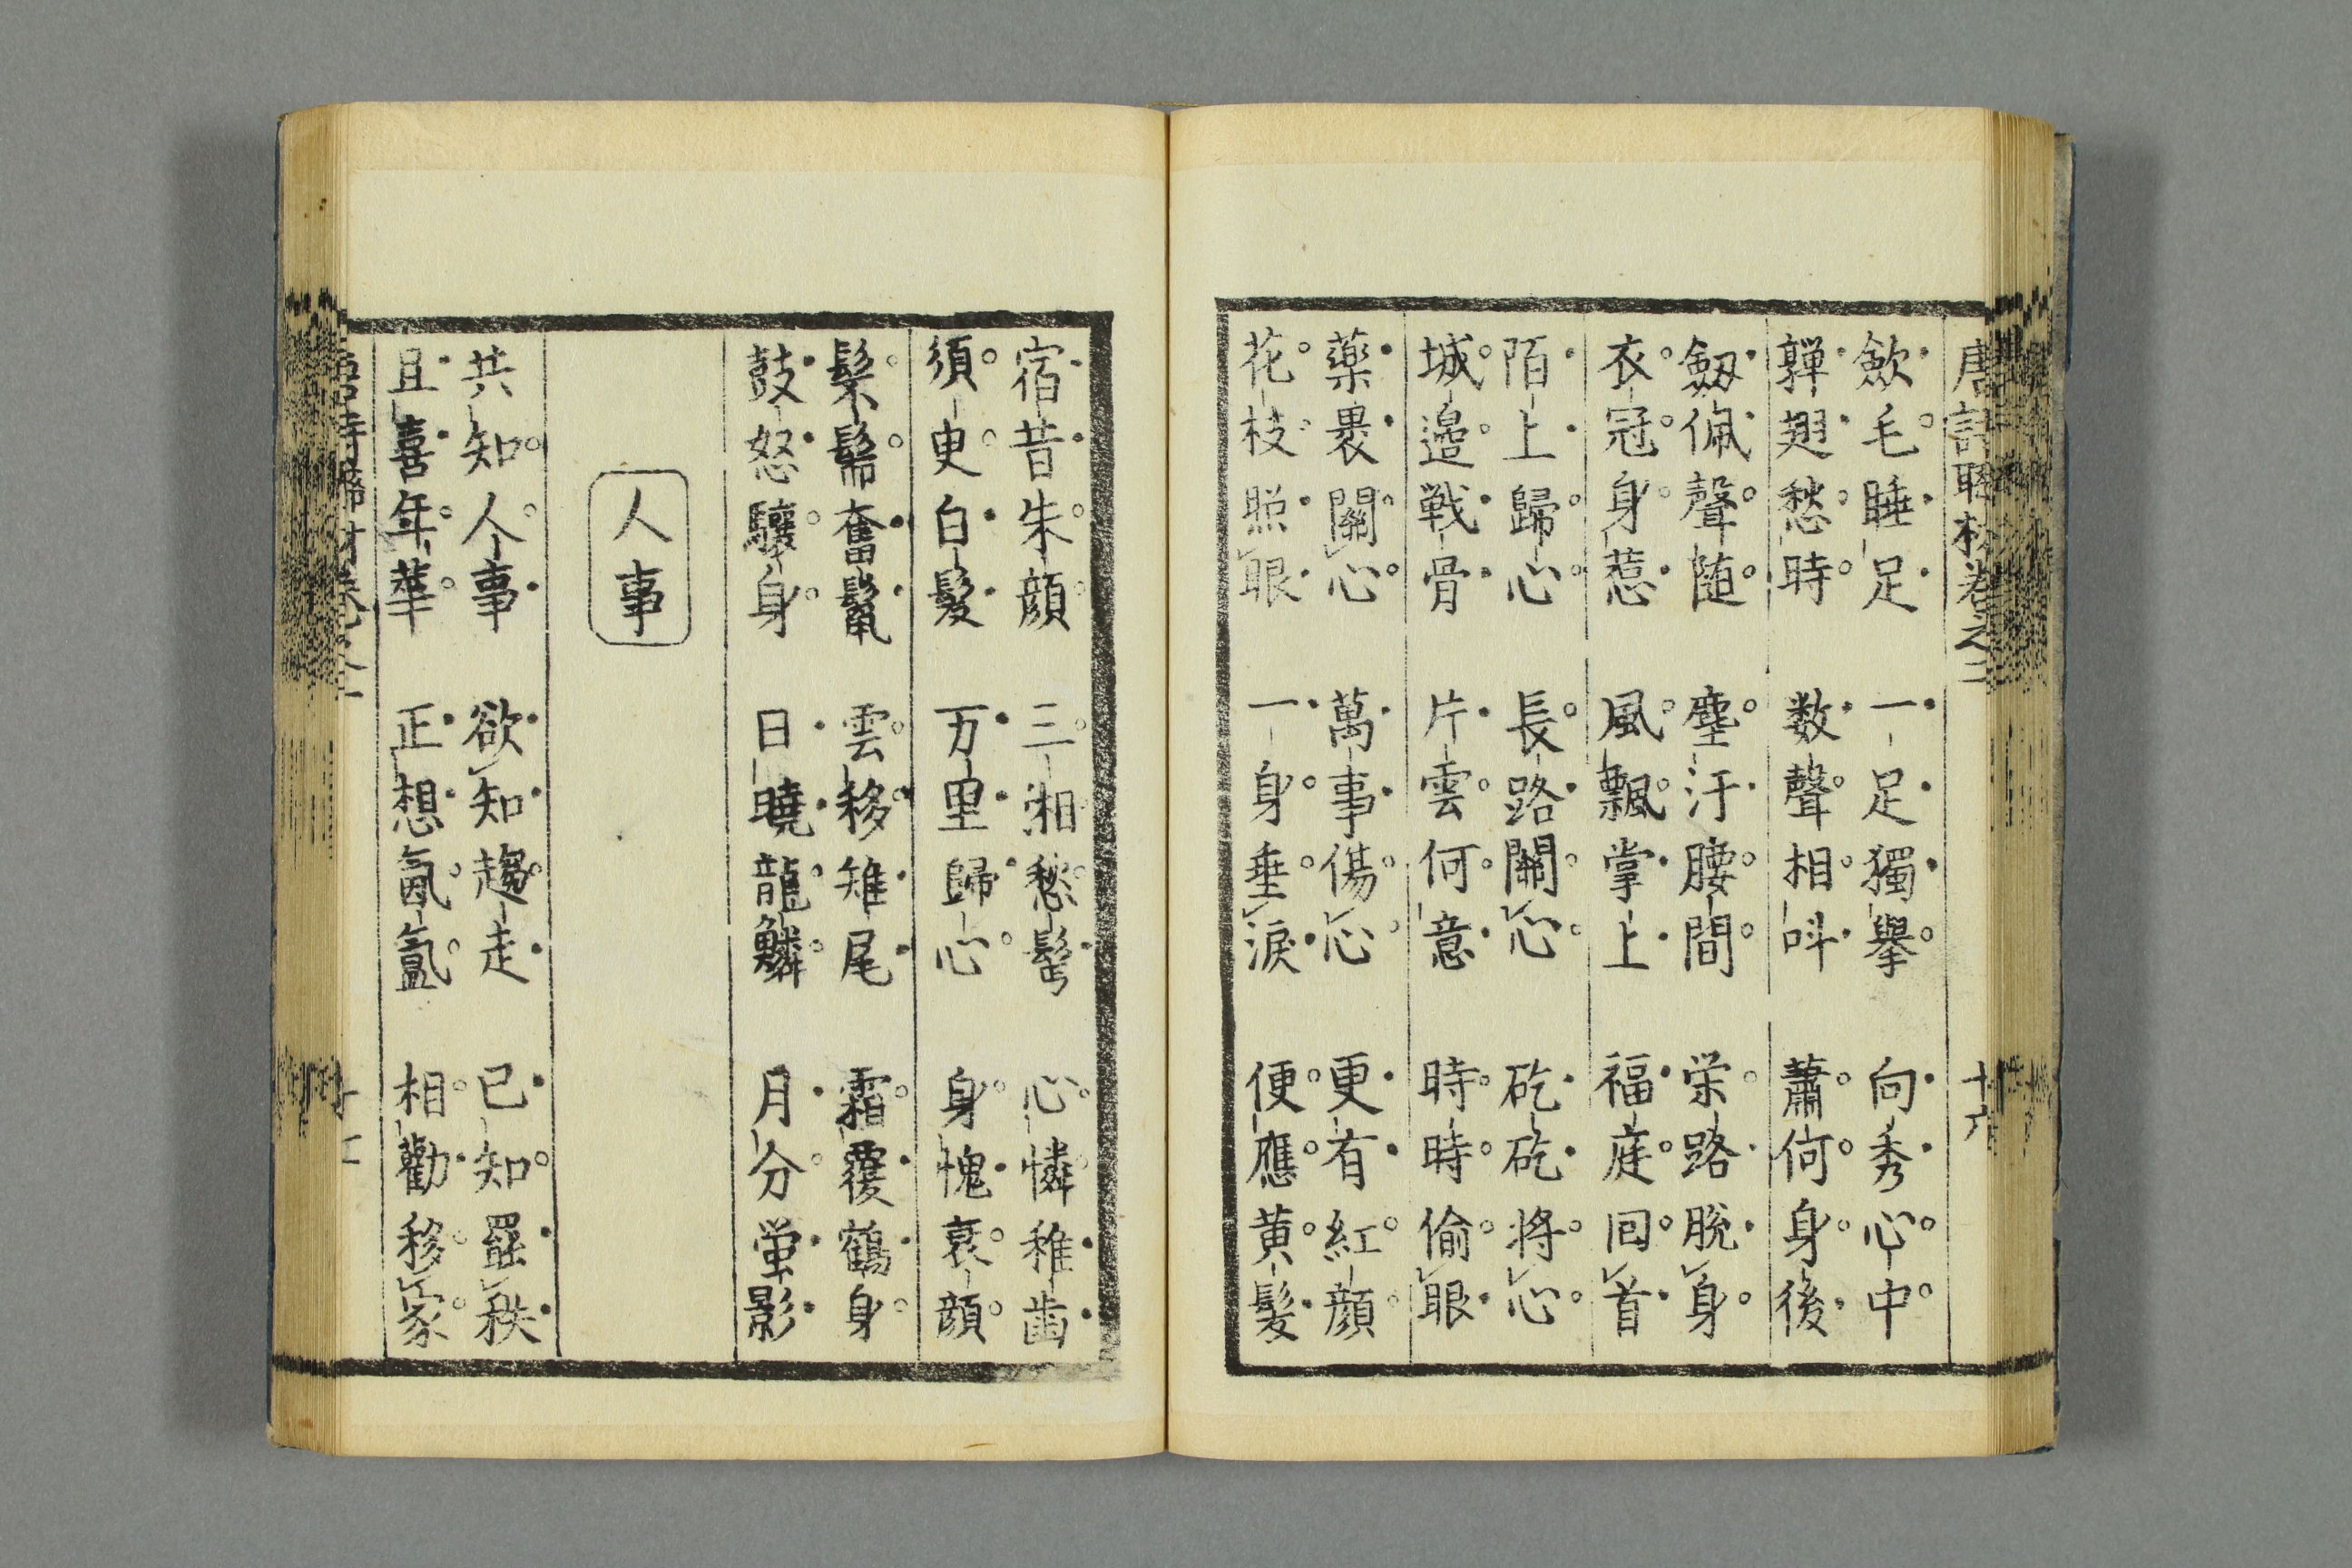 歛毛睡足　一足獨擧　向秀心中
嚲翅愁時　数聲相呌　蕭何身後
劔佩聲随　塵汙腰間　栄路脫身
衣冠身惹　風飄掌上　福庭回首
陌上歸心　長路關心　矻矻将心
城邉戦骨　片雲何意　時時偷眼
藥裹關心　萬事傷心　更有紅顔
花枝照眼　一身垂淚　便應黄髮
宿昔朱顔　三湘愁鬂　心憐稚齒
須臾白髮　万里歸心　身愧衰顔
鬃髵奮鬣　雲移雉尾　霜覆鶴身
鼓怒驤身　日曉龍鱗　月分蛍影
人事
共知人事　欲知趨走　已知罷秩
且喜年華　正想氤氳　相勸移家